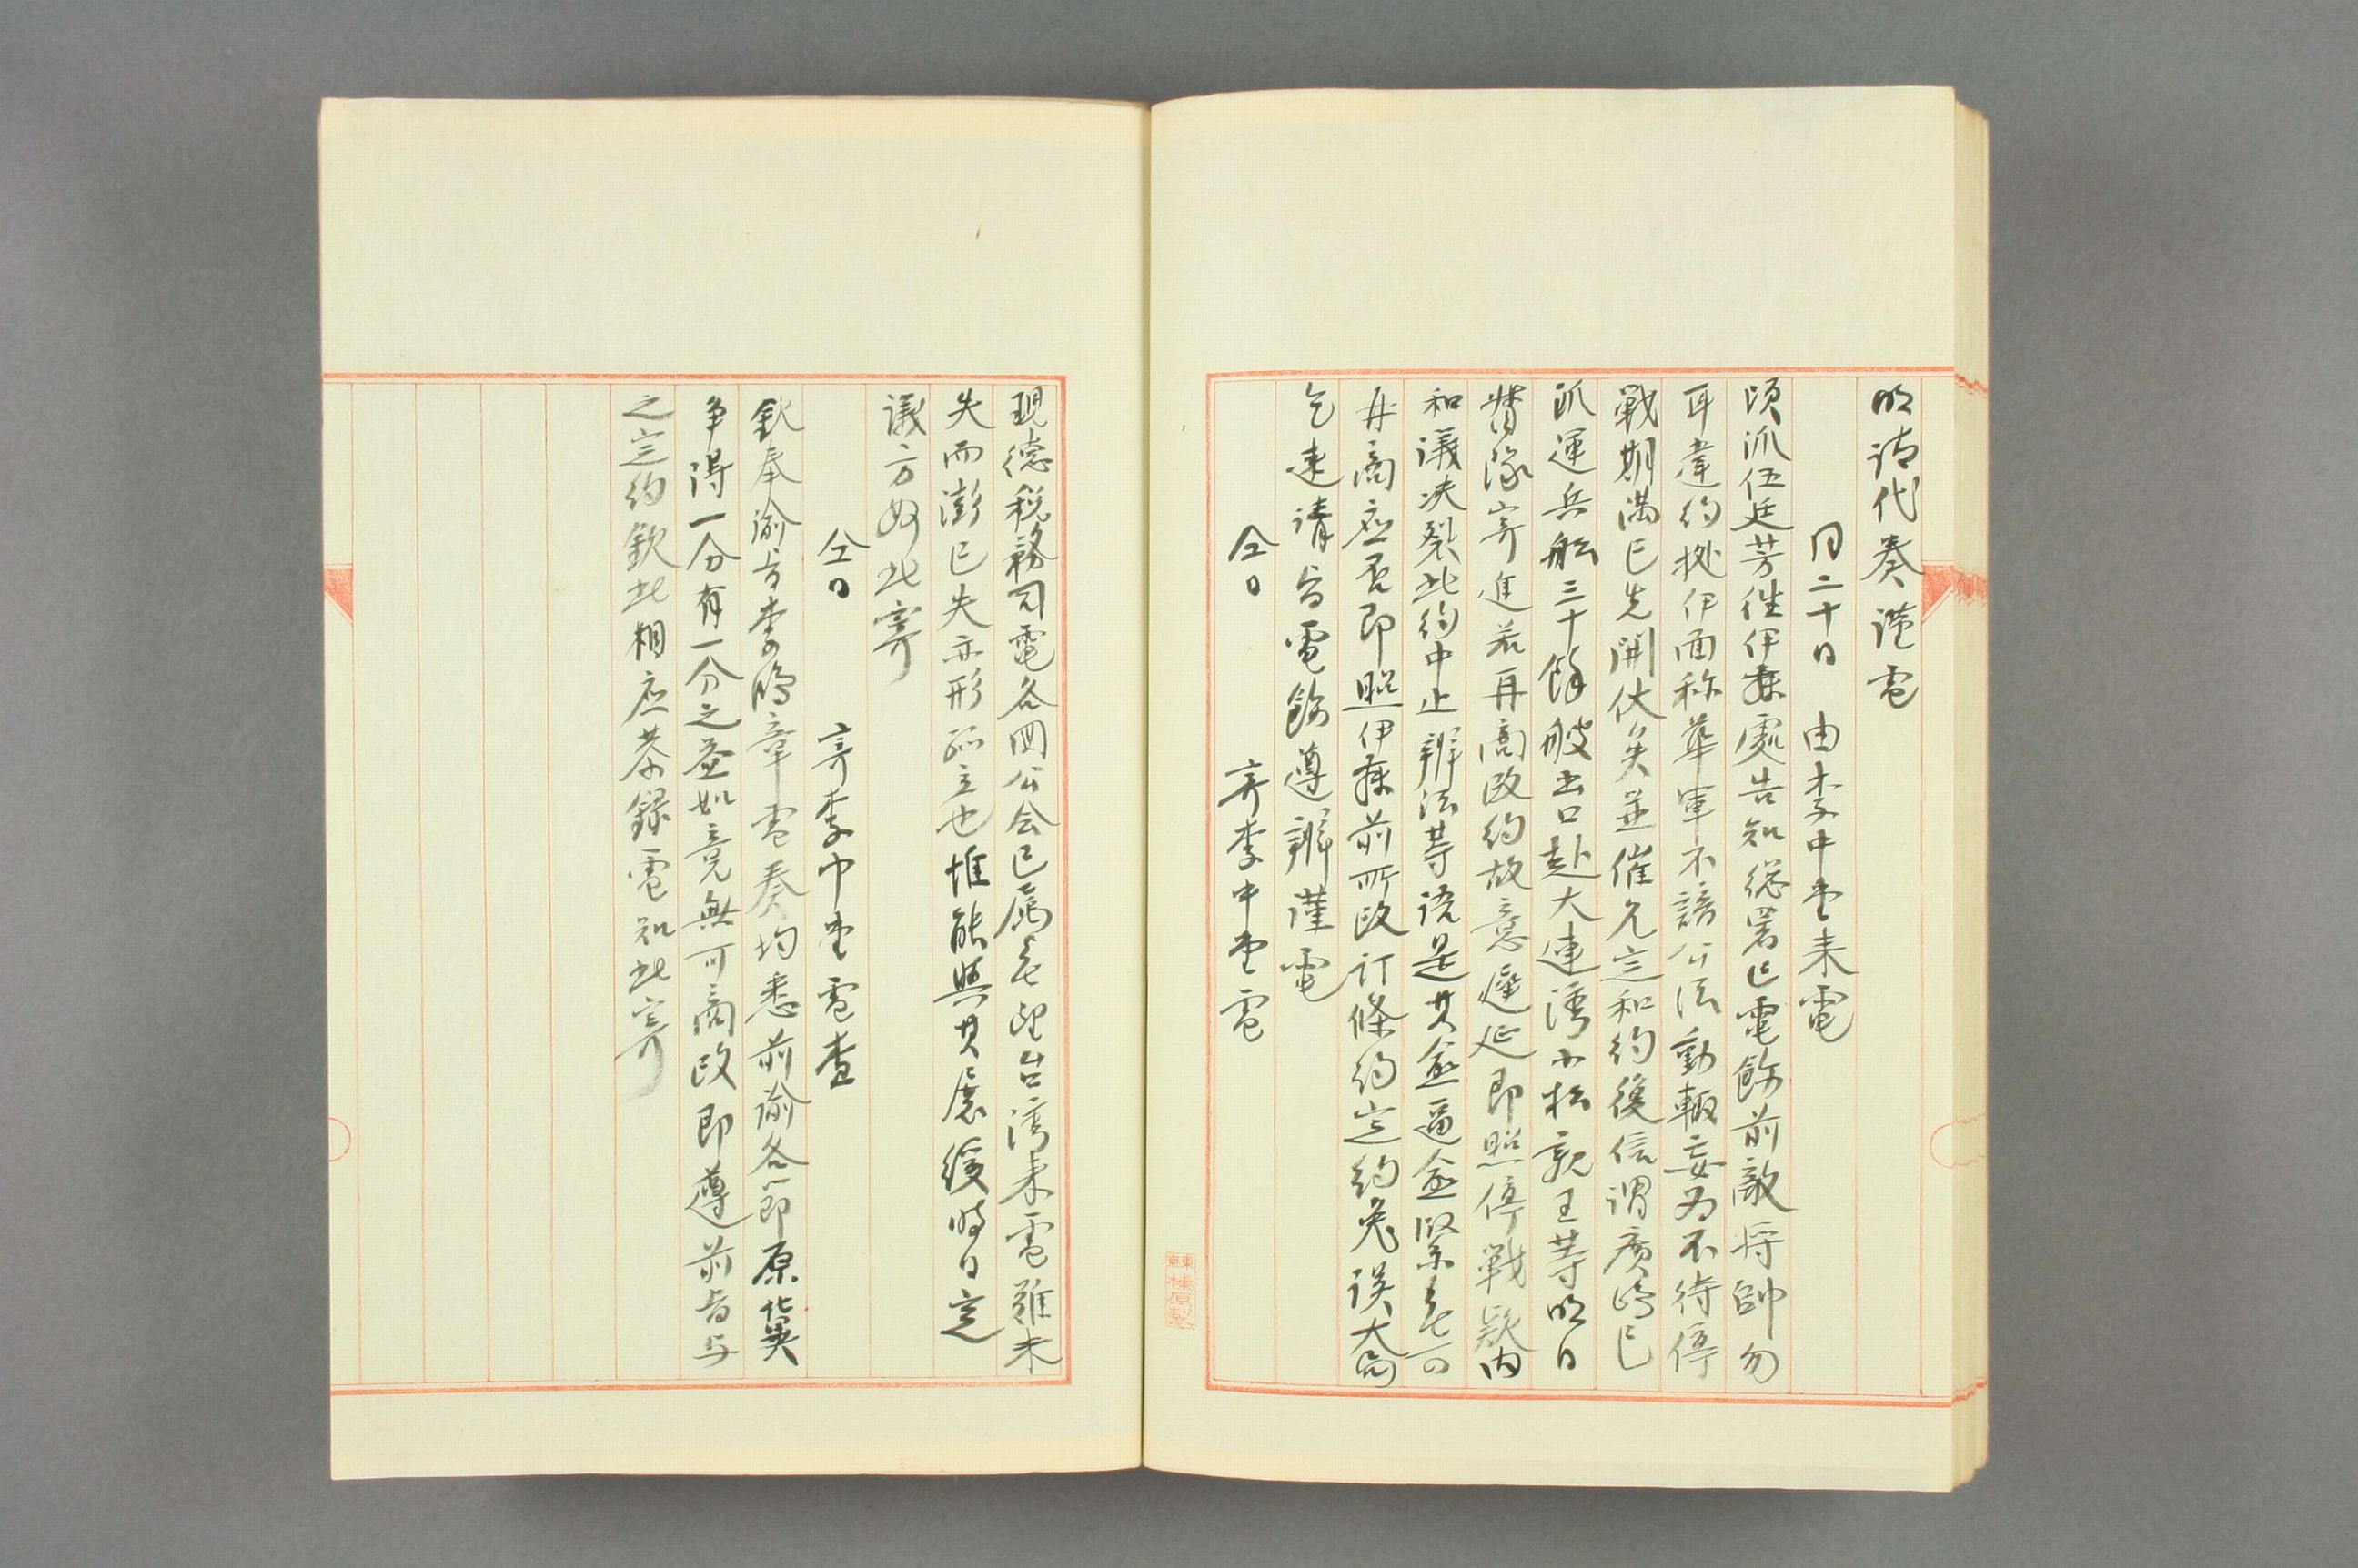 明請代奏謹電
同二十日　由李中堂来電
頃派伍廷芳往伊藤處告知総署已電飭前敵将帥勿
再違約挑伊面称華軍不諳公法動輙妄為不待停
戦期満已先開仗矣並催允定和約後信謂廣島已
派運兵船三十餘艘出口赴大連湾小松親王等明日
督隊寄進若再商改約故意遅延即照停戦款内
和議決裂此約中止辦法等語是其愈逼愈緊無可
再商應否即照伊藤前所改訂條約定約免誤大局
乞速請旨電飭遵辦謹電
仝日　寄李中堂電
現徳税務司電各国公会已属無望台湾来電雖未
失而澎已失亦形孤立也惟能與其展緩時日定
議方好此寄
仝日　寄李中堂電査
欽奉諭旨李鴻章電奏均悉前諭各節原冀
争得一分有一分之益如竟無可商改即遵前旨与
之定約欽此相應恭録電知此寄
東京榛原製